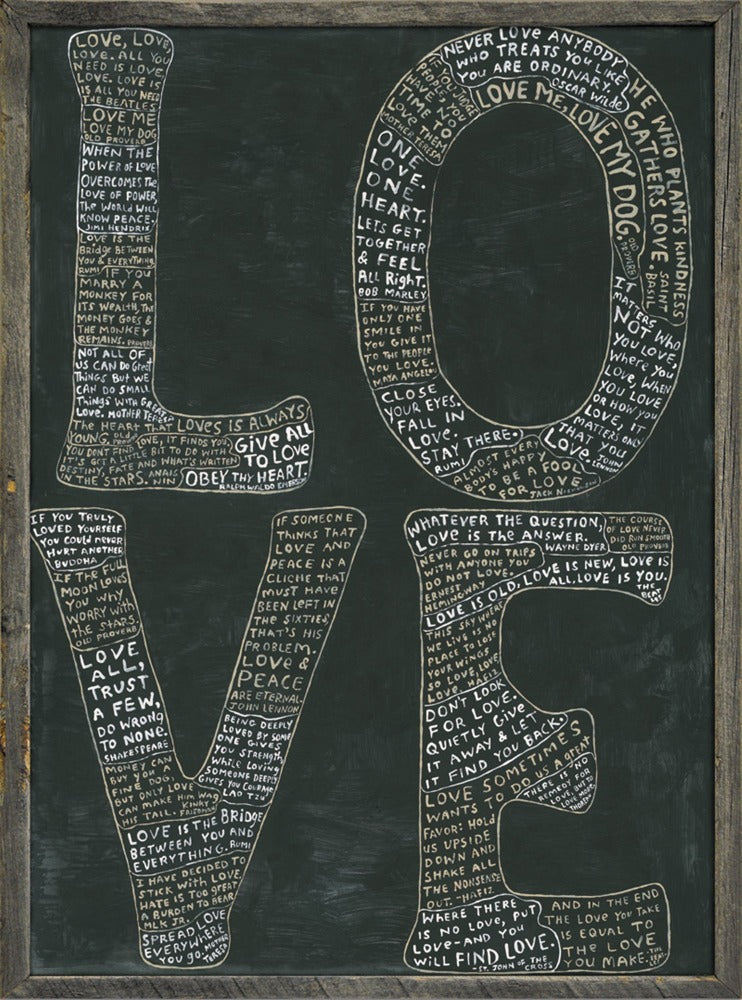 LOVE, LOVE,
LOVE. ALL YOU
NEED IS LOVE,
LOVE. LOVE IS
IS ALL YOU NEED
THE BEATLES
LOVE ME
LOVE MY DOG
OLD PROVERB
WHEN THE
POWER OF LOVE
OVERCOMES THE
LOVE OF POWER,
THE WORLD WILL
KNOW PEACE.
JIMI HENDRIX
LOVE IS THE
BRIDGE BETWEEN
YOU & EVERYTHING
RUMI
IF YOU
MARRY A
MONKEY FOR
ITS WEALTH, THE
MONEY GOES &
THE MONKEY
REMAINS. PROVERB
NOT ALL OF
US CAN DO GREAT
THINGS BUT WE
CAN DO SMALL
THINGS WITH GREAT
LOVE. MOTHER TERESA
THE HEART THAT LOVES IS ALWAYS
YOUNG. OLD PROV
YOU DON'T FIND LOVE, IT FINDS YOU.
IT'S GOT A LITTLE BIT TO DO WITH
DESTINY, FATE AND WHAT'S WRITTEN
IN THE STARS. ANAIS NIN
GIVE ALL
TO LOVE
OBEY THY HEART.
RALPH WALDO EMERSON
NEVER LOVE ANYBODY
WHO TREATS YOU LIKE
YOU ARE ORDINARY.
OSCAR WILDE
IF YOU JUDGE
PEOPLE, YOU
HAVE NO
TIME TO
LOVE THEM
MOTHER TERESA
LOVE ME, LOVE MY DOG.
OLD PROVERB
HE WHO PLANTS KINDNESS
GATHERS LOVE.
SAINT
BASIL
ONE
LOVE.
ONE
HEART.
LETS GET
TOGETHER
& FEEL
ALL RIGHT.
BOB MARLEY
IF YOU HAVE
ONLY ONE
SMILE IN
YOU GIVE IT
TO THE PEOPLE
YOU LOVE.
MAYA ANGELOU
CLOSE
YOUR EYES.
FALL IN
LOVE.
STAY THERE.
RUMI
IT
MATTERS
NOT WHO
YOU LOVE,
WHERE YOU
LOVE, WHEN
YOU LOVE
OR HOW YOU
LOVE, IT
MATTERS ONLY
THAT YOU
LOVE. JOHN
LENNON
ALMOST EVERY
BODY'S HAPPY
TO BE A FOOL
FOR LOVE
JACK
IF YOU TRULY
LOVED YOURSELF
YOU COULD NEVER
HURT ANOTHER
BUDDHA
IF THE FULL
MOON LOVES
YOU WHY
WORRY WITH
THE STARS.
OLD PROVERB
LOVE
ALL,
TRUST
A FEW,
DO WRONG
TO NONE.
SHAKESPEARE
MONEY CAN
BUY YOU A
FINE DOG,
BUT ONLY LOVE
CAN MAKE HIM WAG
HIS TAIL. KINKY FRIEDMAN
LOVE IS THE BRIDGE
BETWEEN YOU AND
EVERYTHING. RUMI
I HAVE DECIDED TO
STICK WITH LOVE.
HATE IS TOO GREAT
A BURDEN TO BEAR
MLK JR.
SPREAD LOVE
EVERYWHERE
YOU GO. MOTHER
TERESA
IF SOMEONE
THINKS THAT
LOVE AND
PEACE IS A
CLICHE THAT
MUST HAVE
BEEN LEFT IN
THE SIXTIES,
THAT'S HIS
PROBLEM.
LOVE &
PEACE
ARE ETERNAL
JOHN LENNON
BEING DEEPLY
LOVED BY SOME
ONE GIVES
YOU STRENGTH,
WHILE LOVING
SOMEONE DEEPLY
GIVES YOU COURAGE
LAO TZU
WHATEVER THE QUESTION,
LOVE IS THE ANSWER.
WAYNE DYER
THE COURSE
OF LOVE NEVER
DID RUN SMOOTH
OLD PROVERB
NEVER GO ON TRIPS
WITH ANYONE YOU
DO NOT LOVE.
ERNEST
HEMINGWAY
LOVE IS OLD, LOVE IS NEW, LOVE IS
ALL. LOVE IS YOU.
THE
BEATLES
THIS SKY WHERE
WE LIVE IS NO
PLACE TO LOSE
YOUR WINGS
SO LOVE, LOVE
LOVE. HAFIZ
DON'T LOOK
FOR LOVE.
QUIETLY GIVE
IT AWAY & LET
IT FIND YOU BACK.
LOVE SOMETIMES
WANTS TO DO US A GREAT
FAVOR: HOLD
US UPSIDE
DOWN AND
SHAKE ALL
THE NONSENSE
OUT. -HAFIZ.
THERE IS NO
REMEDY FOR
LOVE, BUT TO
LOVE MORE
THOREAU
WHERE THERE
IS NO LOVE, PUT
LOVE-AND YOU
WILL FIND LOVE.
-ST. JOHN OF THE
CROSS
AND IN THE END
THE LOVE YOU TAKE
IS EQUAL TO
THE LOVE
YOU MAKE. THE